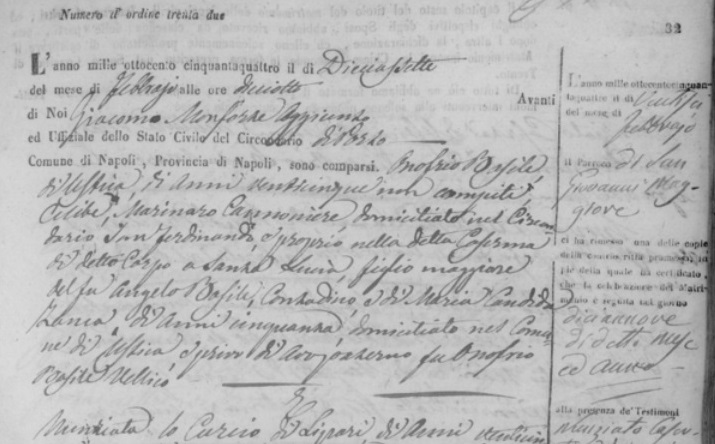 Numero d'ordine trenta due
32
L'anno mille ottocento cinquantaquattro il dì Diciassette
del mese di Febbrajo alle ore diciotto Avanti
di Noi Giacomo Aggiunto
ed Uffiziale dello Stato Civile del Circondario di Porto
Comune di Napoli, Provincia di Napoli, sono comparsi. Onofrio Basile
di Ustica, di Anni venticinque non compiuti,
Celibe, Marinaro Cannoniere domiciliato nel Circon-
dario San Ferdinando e proprio nella detta Caserma
di detto Corpo a Santa Lucia figlio maggiore
del fu Angelo Basile, Contadino e di Maria Candida
Zanca di Anni cinquanta, domiciliato nel Comu-
ne di Ustica e privo di Avo paterno fu Onofrio
Basile
E
Nunziata lo Curcio di Lipari di Anni
L'anno mille ottocentocinquan-
taquattro il dì
del mese di febbrajo
il Parroco di San
Giovanni Mag-
giore
ci ha rimesso una delle copie
della controscritta promessa, in
piè della quale ha certificato,
che la celebrazione del Matri-
monio è seguita nel giorno
diciannove
di detto mese
ed anno
alla presenza de' Testimoni
Nunziato